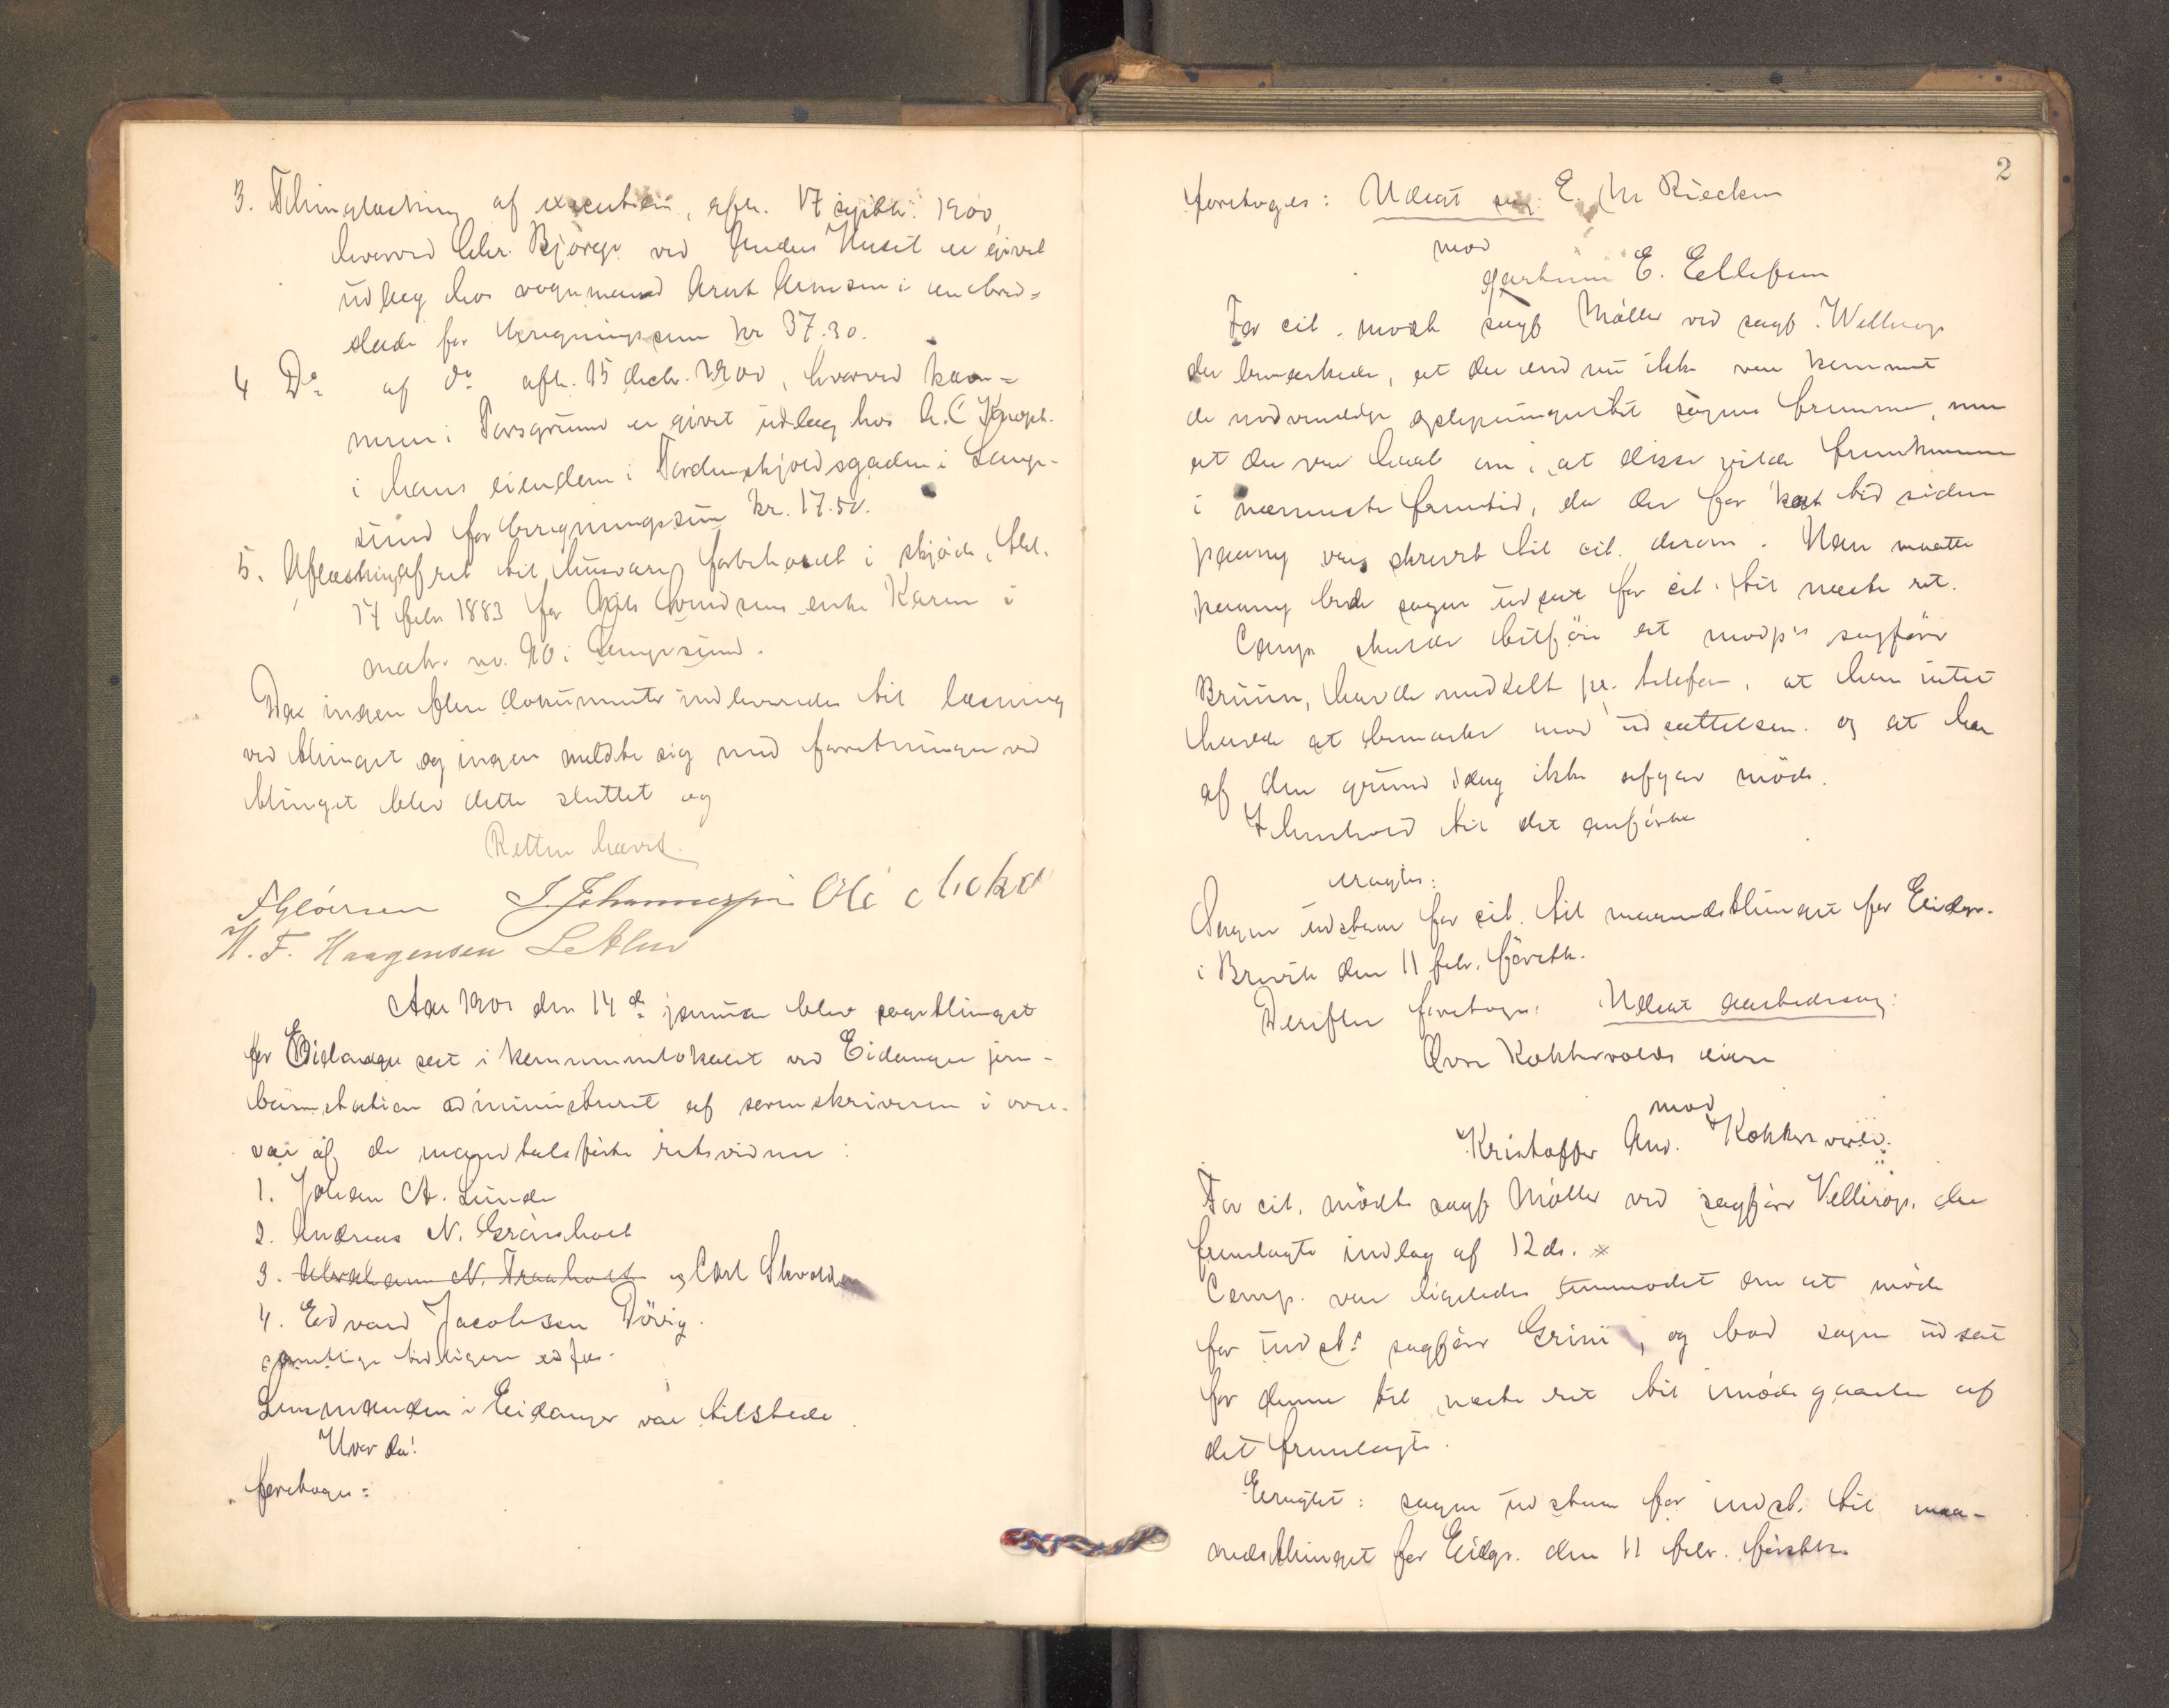 3. Thinglæsning af execution, afh. 17 septbr. 1900,
hvorved Chr. Bjørge ved Anders Huset er givet
udlæg hos vognmand Arnt Arnesen i
for beregningssum kr 37.30.
4 Do af do afh. 15 decbr. 1900, hvorved kem-
neren i Porsgrund er givet udlæg hos A. C.
i hans eiendom i Tordenskjoldsgaden i Lange-
sund for beregningssum kr. 17.50.
5. Aflæsning af ret til husvære forbeholdt i skjøde, thl.
17 febr 1883 for enke Karen i
matr. no. 90 i Langesund.
Da ingen flere dokumenter indleveredes til læsning
ved thinget og ingen meldte sig med forretninger ved
thinget blev dette sluttet og
Retten hævet.
J. Johannesen Ole
H. F. Haagensen
Aar 1901 den 14de januar blev sagthinget
for Eidanger sat i kommunelokalet ved Eidanger jern-
banestation administreret af sorenskriveren i over-
vær af de mandtalsførte retsvidner:
1. Johan A. Lunde
2. Andreas N. Grønsholt
3. Abraham N. Traaholt og Carl Skvolden
4. Edvard Jacobsen Dövig.
samtlige tidligere edfæs.
Lensmanden i Eidanger var tilstede
Hvor da!
foretoges:
2
foretoges: Udsat sag: E. M Riecken
mod
gartner E. Ellefsen
For cit. mødte sagf Møller ved sagf. Wellerop
der bemærkede, at der endnu ikke var kommet
de nødvendige oplysninger til sagens fremme, men
at der var haab om, at disse vilde fremkomme
i nærmeste fremtid, da der for kort tid siden
paany var skrevet til cit. derom. Han maatte
paany bede sagen udsat for cit. til næste ret.
Comp. skulde tilføie at modp's sagfører
Bruun, havde meddelt pr. telefon, at han intet
havde at bemærke mod udsættelsen og at han
af den grund idag ikke afgav møde.
I henhold til det anførte
eragtes:
Sagen udstaar for cit. til maanedsthinget for Eidgr.
i Brevik den 11 febr. førstk.
Derefter foretoges: Udsat aastedssag:
Øvre Kokkersvolds eiere
mod
Kristoffer And. Kokkersvold.
For cit. mødte sagf Møller ved sagfører Vellerop, der
fremlagte indlæg af 12 ds. *
Comp. var ligeledes anmodet om at møde
for indst. sagfører Grini, og bad sagen udsat
for denne til næste ret til imødegaaelse af
det fremlagte.
Eragtet: sagen udstaar for indst. til maa-
nedsthinget for Eidgr. den 11 febr. førstk.